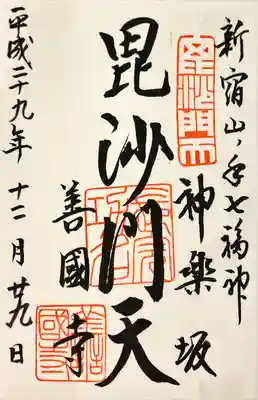 新宿山ノ手七福神
神楽坂
毘沙門天
善國寺
平成二十九年十二月廿九日
毘沙門天